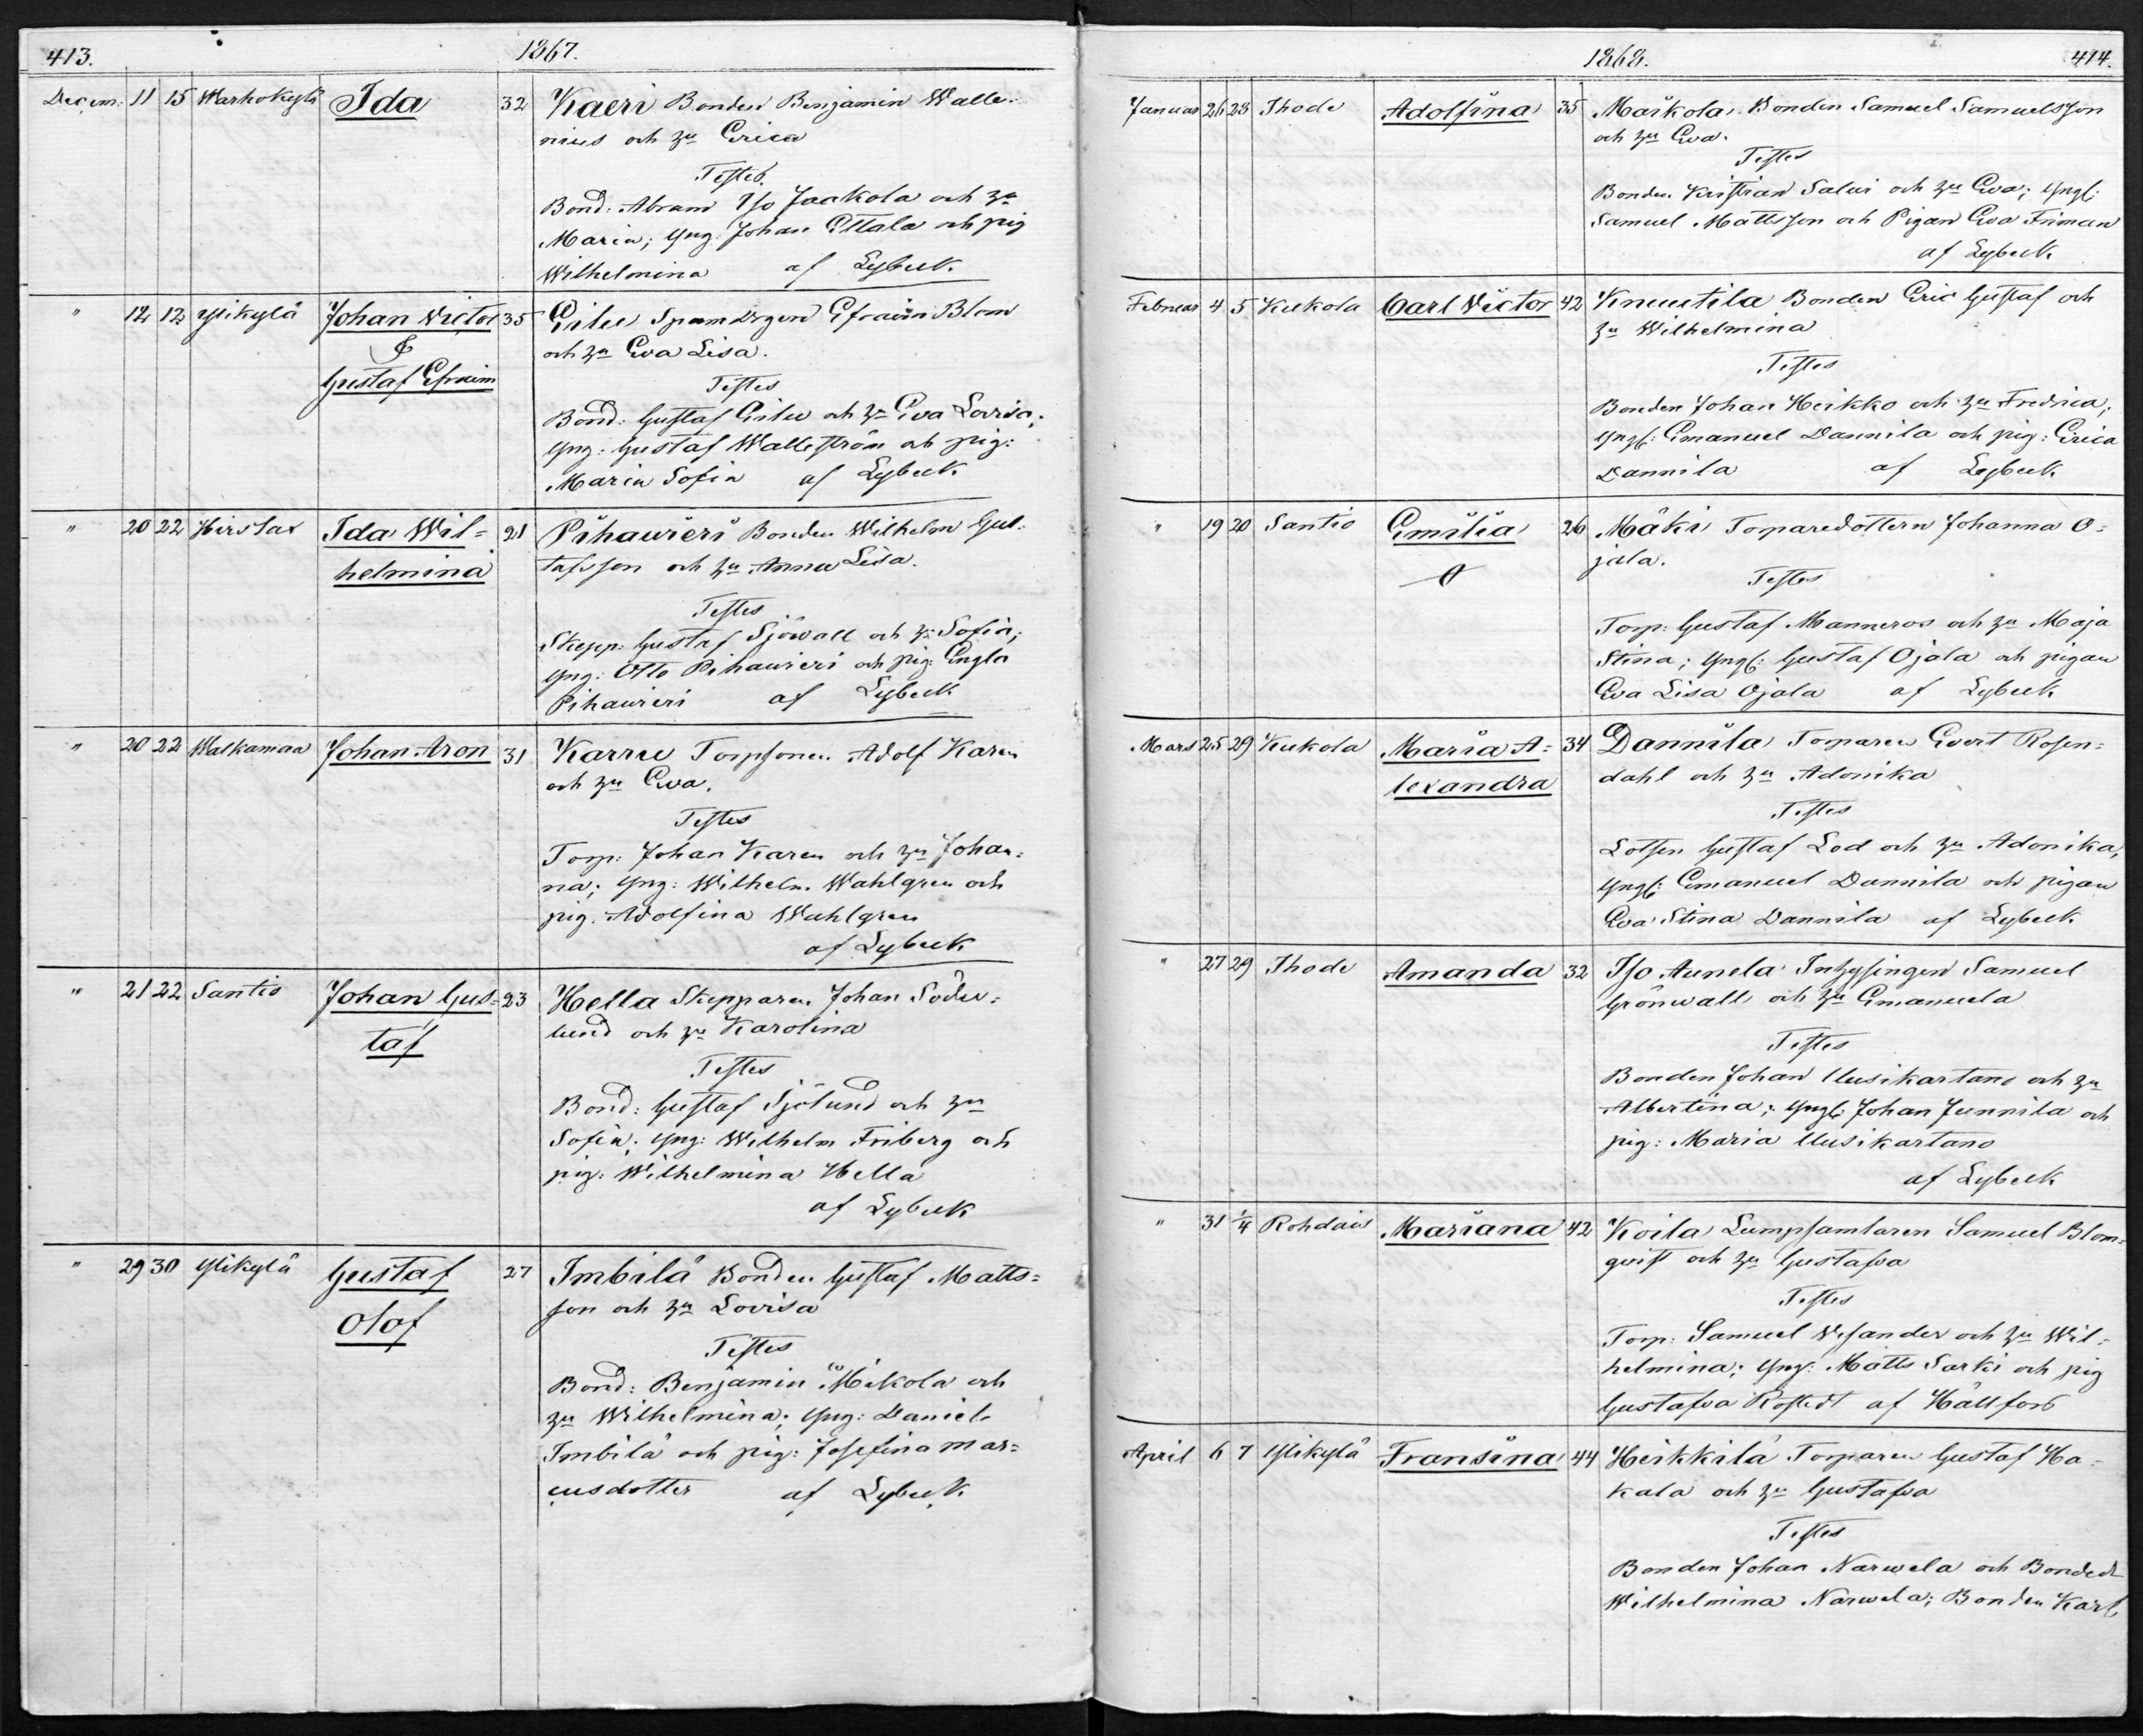 413.
1867.
Decem: 11 15 Warhokylä Ida 32 Kaeri Bonden Benjamin Walle-
nius och hu Erica
Testes.
Bond: Abram Iso Jaakola och hu
Maria; yng: Johan Ettala och pig
Wilhelmina af Lybeck.
" 12 12 Ylikylä Johan Victor 35 Eilee Spanmdrgen Efraim Blom
& och hu Eva Lisa.
Gustaf Efraim
Testes
Bond: Gustaf Eilee och hu Eva Lovisa;
yng: Gustaf Walleström och pig:
Maria Sofia af Lybeck
" 20 22 Hirslax Ida Wil= 21 Pihawieri Bonden Wilhelm Gus-
helmina tafsson och hu Anna Lisa.
Testes
Skepp: Gustaf Sjöwall och hu Sofia;
yng: Otto Pihawieri och pig: Engla
Pihawieri af Lybeck
" 20 22 Walkamaa Johan Aron 31 Karru Torpsonen Adolf Karen
och hu Eva.
Testes
Torp: Johan Karen och hu Johan-
na; yng: Wilhelm Wahlgren och
pig: Adolfina Wahlgren
af Lybeck
" 21 22 Santio Johan Gus= 23 Hella Skepparen Johan Söder-
taf lund och hu Karolina
Testes
Bond: Gustaf Sjölund och hu
Sofia; yng: Wilhelm Friberg och
pig: Wilhelmina Hella
af Lybeck
" 29 30 Ylikylä Gustaf 27 Imbilä Bonden Gustaf Matts=
Olof son och hu Lovisa
Testes
Bond: Benjamin Mikola och
hu Wilhelmina; yng: Daniel
Imbilä och pig: Josefina Mar=
cusdotter af Lybeck
1868.
414.
Januar 26 28 Thode Adolfina 35 Maikola Bonden Samuel Samuelsson
och hu Eva.
Testes
Bonden Kristian Salwi och hu Eva; yngl:
Samuel Mattsson och Pigan Eva Friman
af Lybeck
Februar 4 5 Kukola Carl Victor 42 Knuutila Bonden Eric Gustaf och
hu Wilhelmina
Testes
Bonden Johan Heikko och hu Fredrica;
yngl: Emanuel Dannila och pig: Erica
Dannila af Lybeck
" 19 20 Santio Emilia 26 Mäki Toparedottern Johanna O=
jala.
Testes
Torp: Gustaf Manneros och hu Maja
Stina; yngl: Gustaf Ojala och pigan
Eva Lisa Ojala af Lybeck
Mars 25 29 Kukola Maria A= 34 Dannila Toparen Evert Rosen=
lexandra dahl och hu Adonika
Testes
Lotsen Gustaf Lod och hu Adonika,
yngl: Emanuel Dannila och pigan
Eva Stina Dannila af Lybeck
" 27 29 Thode Amanda 32 Iso Aunela Inhysingen Samuel
Grönwall och hu Emanuela
Testes
Bonden Johan Uusikartano och hu
Albertina; yngl: Johan Junnila och
pig: Maria Uusikartano
af Lybeck
" 31 1/4 Rohdais Mariana 42 Koila Lumpsamlaren Samuel Blom=
qvist och hu Gustafva
Testes
Torp: Samuel Wesander och hu Wil-
helmina; yng: Matts Sarki och pig
Gustafva Rostedt af Hällfors
April 6 7 Ylikylä Fransina 44 Heikkilä Torparen Gustaf Ha-
kala och hu Gustafva
Testes
Bonden Johan Narwela och Bonded
Wilhelmina Narwela; Bonden Karl